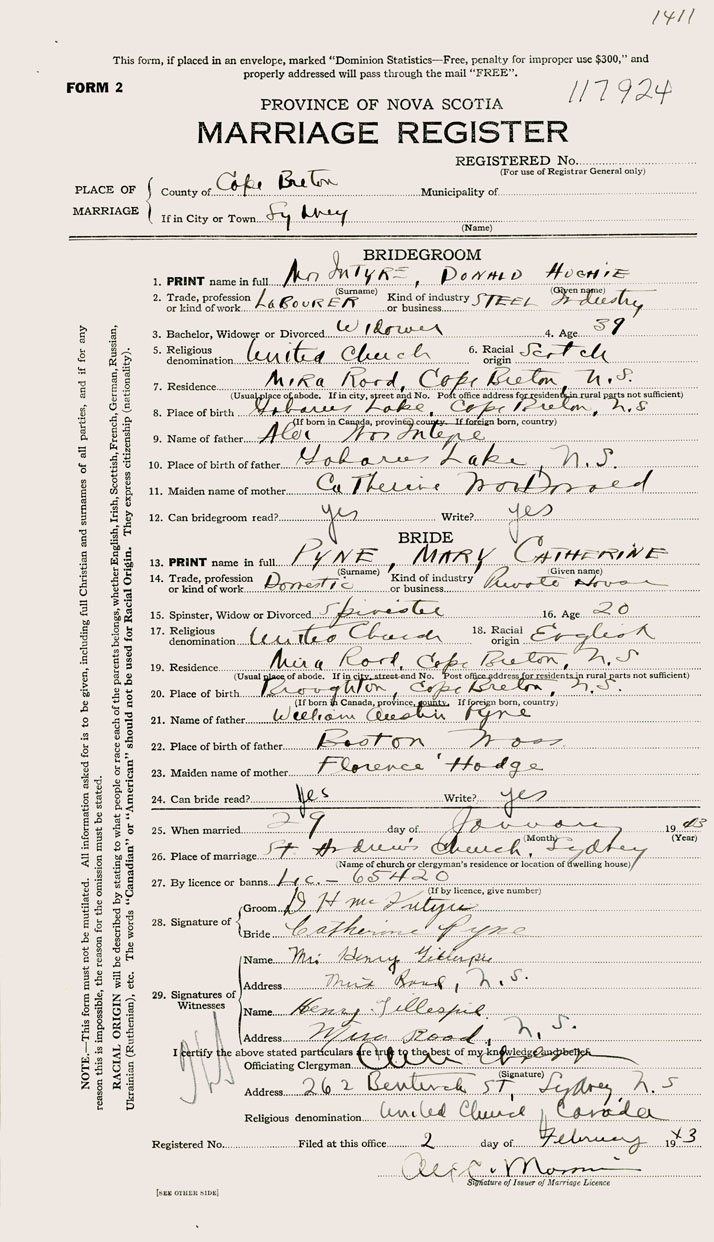 1411
This form, if placed in an envelope, marked "Dominion Statistics—Free, penalty for improper use $300," and
properly addressed will pass through the mail "FREE".
FORM 2
117924
PROVINCE OF NOVA SCOTIA
MARRIAGE REGISTER
REGISTERED No.
(For use of Registrar General only)
PLACE OF MARRIAGE
County of Cape Breton Municipality of
If in City or Town Sydney
(Name)
BRIDEGROOM
1. PRINT name in full MacINTYRE, DONALD HUGHIE
(Surname) (Given name)
2. Trade, profession or kind of work LABOURER Kind of industry or business STEEL Industry
3. Bachelor, Widower or Divorced Widower 4. Age 39
5. Religious denomination United Church 6. Racial origin Scotch
7. Residence Mira Road, Cape Breton, N.S.
(Usual place of abode. If in city, street and No. Post office address for residents in rural parts not sufficient)
8. Place of birth Gabarus Lake, Cape Breton, N.S
(If born in Canada, province, county. If foreign born, country)
9. Name of father Alex MacIntyre
10. Place of birth of father Gabarus Lake, N.S.
11. Maiden name of mother Catherine MacDonald
12. Can bridegroom read? yes Write? yes
BRIDE
13. PRINT name in full PYNE, MARY CATHERINE
(Surname) (Given name)
14. Trade, profession or kind of work Domestic Kind of industry or business Private House
15. Spinster, Widow or Divorced Spinster 16. Age 20
17. Religious denomination United Church 18. Racial origin English
19. Residence Mira Road, Cape Breton, N.S
(Usual place of abode. If in city, street and No. Post office address for residents in rural parts not sufficient)
20. Place of birth Broughton, Cape Breton, N.S.
(If born in Canada, province, county. If foreign born, country)
21. Name of father William Austin Pyne
22. Place of birth of father Boston Mass.
23. Maiden name of mother Florence Hodge
24. Can bride read? yes Write? yes
25. When married 29 day of January 1943
(Month) (Year)
26. Place of marriage St Andrew's Church, Sydney
(Name of church or clergyman's residence or location of dwelling house)
27. By licence or banns Lic. - 65420
(If by licence, give number)
28. Signature of
Groom D H McIntyre
Bride Catherine Pyne
29. Signatures of Witnesses
Name Mrs Henry Gillespie
Address Mira Road, N.S.
Name Henry Gillespie
Address Mira Road, N.S.
I certify the above stated particulars are true to the best of my knowledge and belief.
Officiating Clergyman
(Signature)
Address 262 Bentinck St, Sydney, N.S
Religious denomination United Church Canada
Registered No. Filed at this office 2 day of February 1943
Signature of Issuer of Marriage Licence
[SEE OTHER SIDE]
NOTE.—This form must not be mutilated. All information asked for is to be given, including full Christian and surnames of all parties, and if for any
reason this is impossible, the reason for the omission must be stated.
RACIAL ORIGIN will be described by stating to what people or race each of the parents belongs, whether English, Irish, Scottish, French, German, Russian,
Ukrainian (Ruthenian), etc. The words "Canadian" or "American" should not be used for Racial Origin. They express citizenship (nationality).